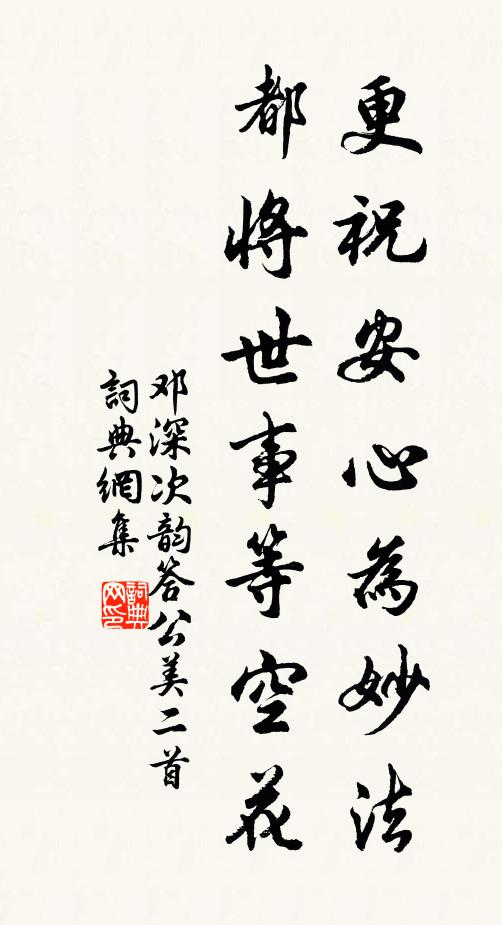 更祝安心為妙法
都將世事等空花
邓深次韵答公美二首
詞典網集
詞典网印